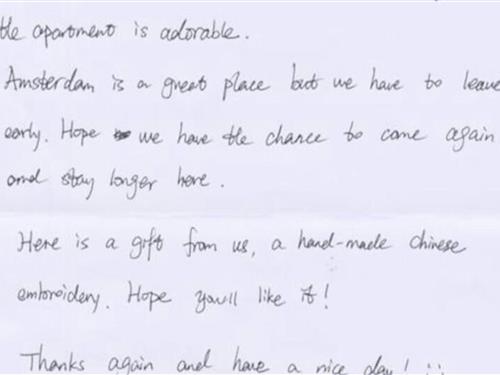 the apartment is adorable.
Amsterdam is a great place but we have to leave
early. Hope we have the chance to come again
and stay longer here.
Here is a gift from us, a hand-made chinese
embroidery. Hope you'll like it!
Thanks again and have a nice day! :)